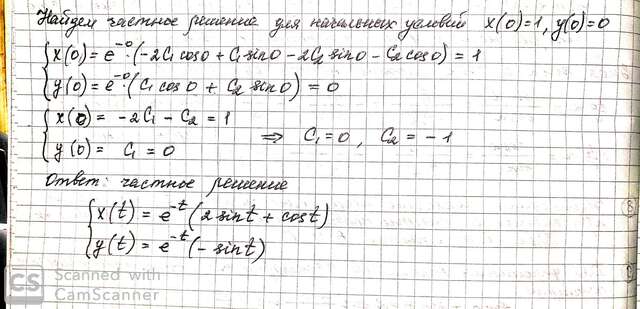 Найдем частное решение для начальных условий x(0)=1, y(0)=0
x(0) = e^{-0}·(-2C₁ cos0 + C₁ sin0 - 2C₂ sin0 - C₂ cos0) = 1
y(0) = e^{-0}·(C₁ cos0 + C₂ sin0) = 0
x(0) = -2C₁ - C₂ = 1
y(0) = C₁ = 0
⇒ C₁=0, C₂ = -1
Ответ: частное решение
x(t) = e^{-t}(2sint + cost)
y(t) = e^{-t}(-sint)
CS Scanned with
CamScanner